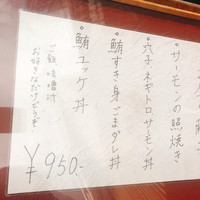 ・サーモンの照焼き
・穴子ネギトロサーモン丼
・鮪すき身ごまダレ丼
・鮪ユッケ丼
ご飯、味噌汁
お好きなだけどうぞ
￥950.-